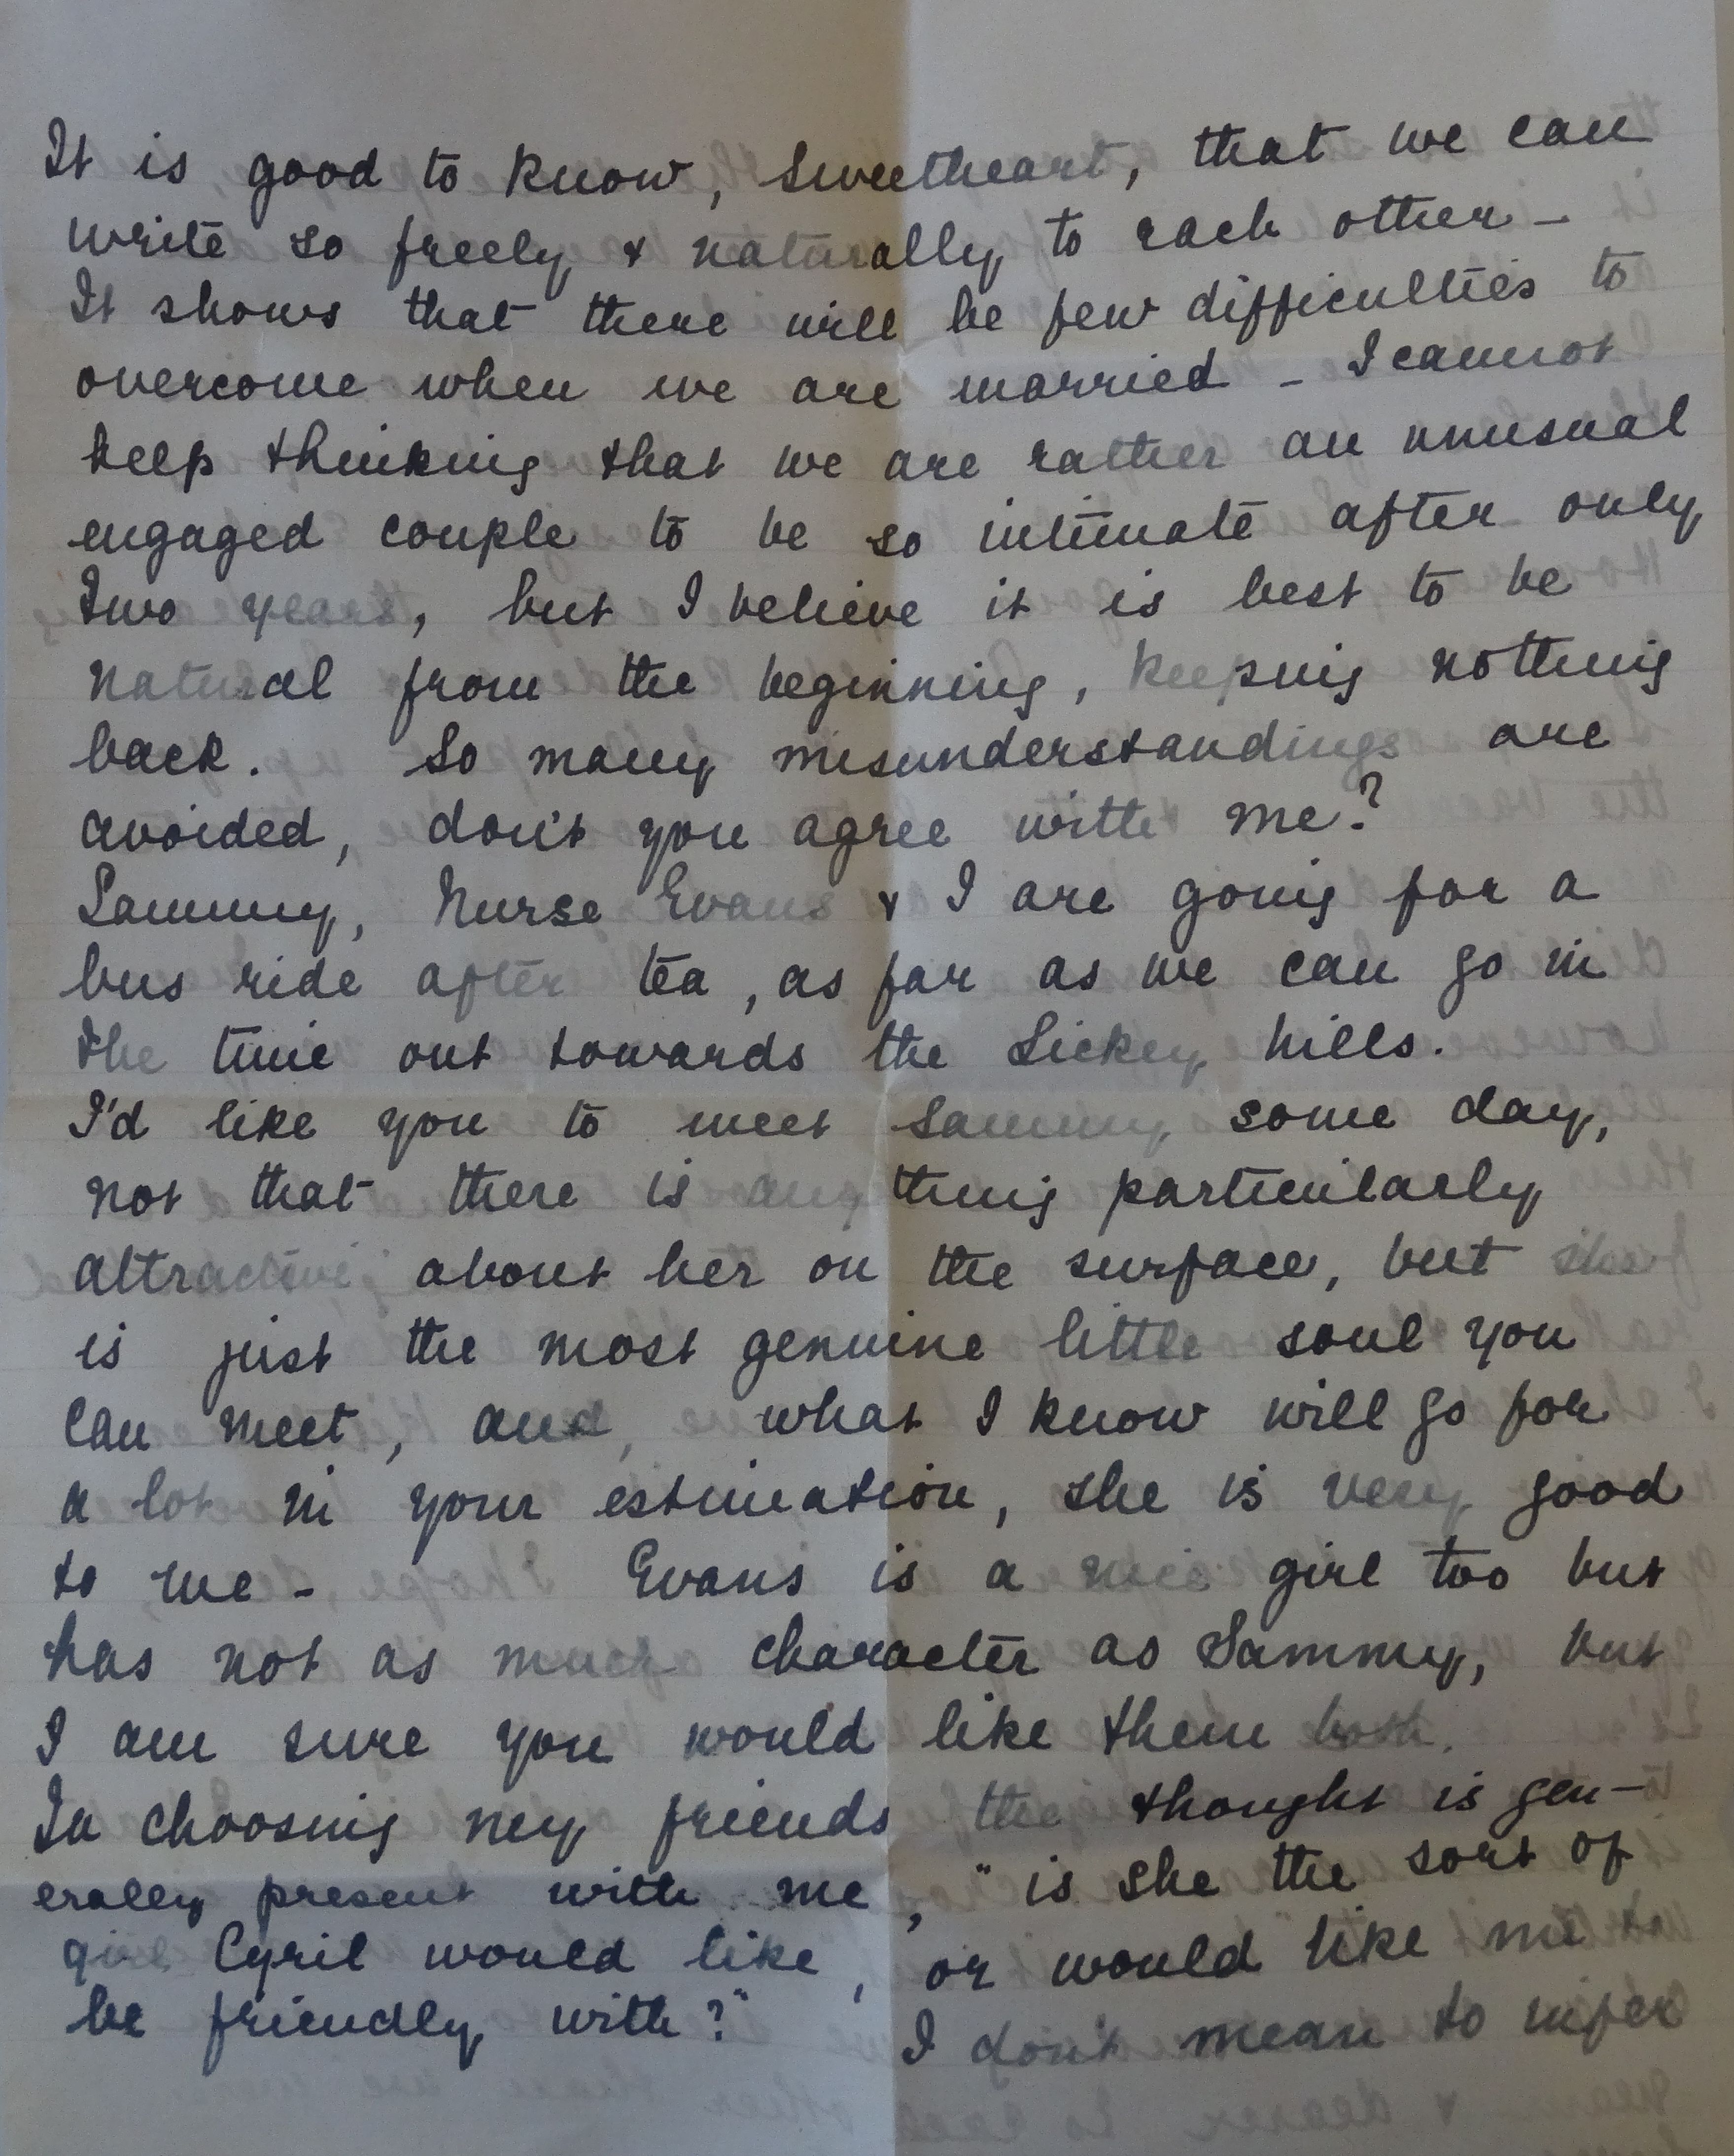 It is good to know, Sweetheart, that we can
write so freely & naturally to each other -
It shows that there will be few difficulties to
overcome when we are married - I cannot
keep thinking that we are rather an unusual
engaged couple to be so intimate after only
two years, but I believe it is best to be
natural from the beginning, keeping nothing
back. So many misunderstandings are
avoided, don't you agree with me?
Sammy, Nurse Evans & I are going for a
bus ride after tea, as far as we can go in
the time out towards the Lickey hills.
I'd like you to meet Sammy some day,
not that there is any thing particularly
attractive about her on the surface, but she
is just the most genuine little soul you
can meet, and, what I know will go for
a lot in your estimation, she is very good
to me - Evans is a nice girl too but
has not as much character as Sammy, but
I am sure you would like them both.
In choosing my friends the thought is gen-
erally present with me, "is she the sort of
girl Cyril would like, or would like me to
be friendly with?" I don't mean to infer